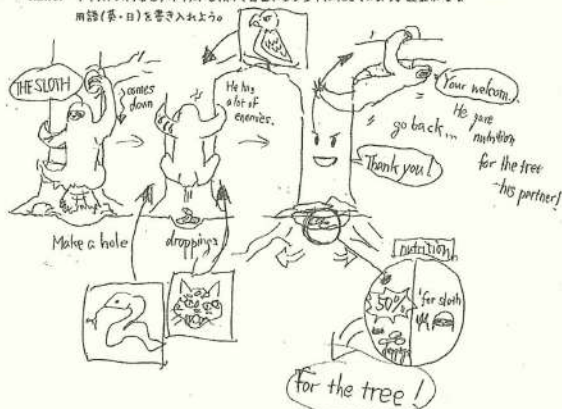 用語(英・日)を書き入れよう。
THE SLOTH
comes
down
He has
a lot of
enemies.
Your welcom..
go back...
He gave
nutrition
for the tree
his partner!
Thank you!
Make a hole
droppings
nutrition
50%
for sloth
For the tree!